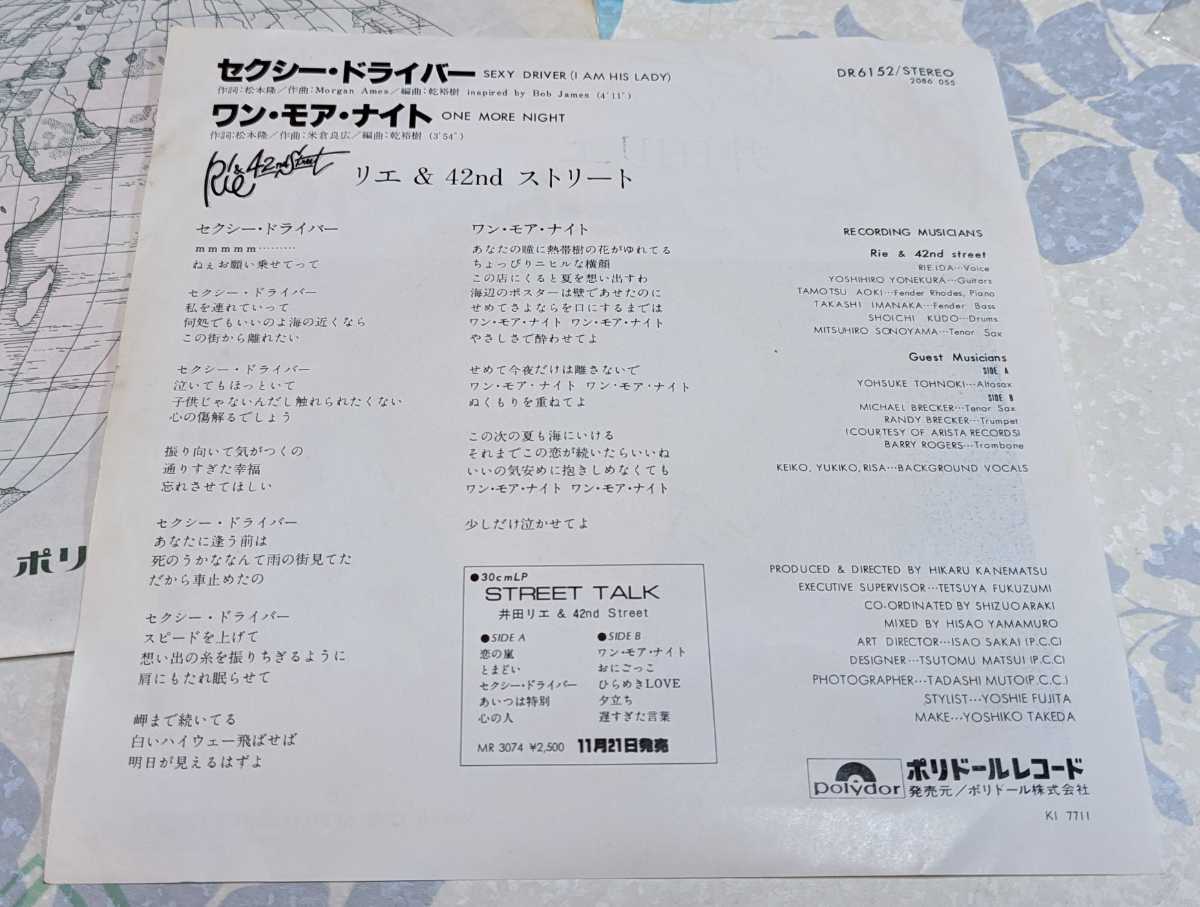 セクシー・ドライバー SEXY DRIVER (I AM HIS LADY)
作詞:松本隆／作曲:Morgan Ames／編曲:乾裕樹 inspired by Bob James (4'11")
ワン・モア・ナイト ONE MORE NIGHT
作詞:松本隆／作曲:米倉良広／編曲:乾裕樹 (3'54")
DR6152/STEREO
2086 055
Rie & 42nd Street
リエ & 42nd ストリート
セクシー・ドライバー
mmmmm………
ねぇお願い乗せてって
セクシー・ドライバー
私を連れていって
何処でもいいのよ海の近くなら
この街から離れたい
セクシー・ドライバー
泣いてもほっといて
子供じゃないんだし触れられたくない
心の傷解るでしょう
振り向いて気がつくの
通りすぎた幸福
忘れさせてほしい
セクシー・ドライバー
あなたに逢う前は
死のうかななんて雨の街見てた
だから車止めたの
セクシー・ドライバー
スピードを上げて
想い出の糸を振りちぎるように
肩にもたれ眠らせて
岬まで続いてる
白いハイウェー飛ばせば
明日が見えるはずよ
ワン・モア・ナイト
あなたの瞳に熱帯樹の花がゆれてる
ちょっぴりニヒルな横顔
この店にくると夏を想い出すわ
海辺のポスターは壁であせたのに
せめてさよならを口にするまでは
ワン・モア・ナイト ワン・モア・ナイト
やさしさで酔わせてよ
せめて今夜だけは離さないで
ワン・モア・ナイト ワン・モア・ナイト
ぬくもりを重ねてよ
この次の夏も海にいける
それまでこの恋が続いたらいいね
いいの気安めに抱きしめなくても
ワン・モア・ナイト ワン・モア・ナイト
少しだけ泣かせてよ
●30cmLP
STREET TALK
井田リエ & 42nd Street
●SIDE A
恋の嵐
とまどい
セクシー・ドライバー
あいつは特別
心の人
●SIDE B
ワン・モア・ナイト
おにごっこ
ひらめきLOVE
夕立ち
遅すぎた言葉
MR 3074 ¥2,500 11月21日発売
RECORDING MUSICIANS
Rie & 42nd street
RIE IDA…Voice
YOSHIHIRO YONEKURA…Guitars
TAMOTSU AOKI…Fender Rhodes, Piano
TAKASHI IMANAKA…Fender Bass
SHOICHI KUDO…Drums
MITSUHIRO SONOYAMA…Tenor Sax
Guest Musicians
SIDE A
YOHSUKE TOHNOKI…Altosax
SIDE B
MICHAEL BRECKER…Tenor Sax
RANDY BRECKER…Trumpet
(COURTESY OF ARISTA RECORDS)
BARRY ROGERS…Trombone
KEIKO, YUKIKO, RISA…BACKGROUND VOCALS
PRODUCED & DIRECTED BY HIKARU KANEMATSU
EXECUTIVE SUPERVISOR…TETSUYA FUKUZUMI
CO-ORDINATED BY SHIZUO ARAKI
MIXED BY HISAO YAMAMURO
ART DIRECTOR…ISAO SAKAI (P.C.C)
DESIGNER…TSUTOMU MATSUI (P.C.C)
PHOTOGRAPHER…TADASHI MUTO(P.C.C.)
STYLIST…YOSHIE FUJITA
MAKE…YOSHIKO TAKEDA
polydor
ポリドールレコード
発売元／ポリドール株式会社
KI 7711
ポリ